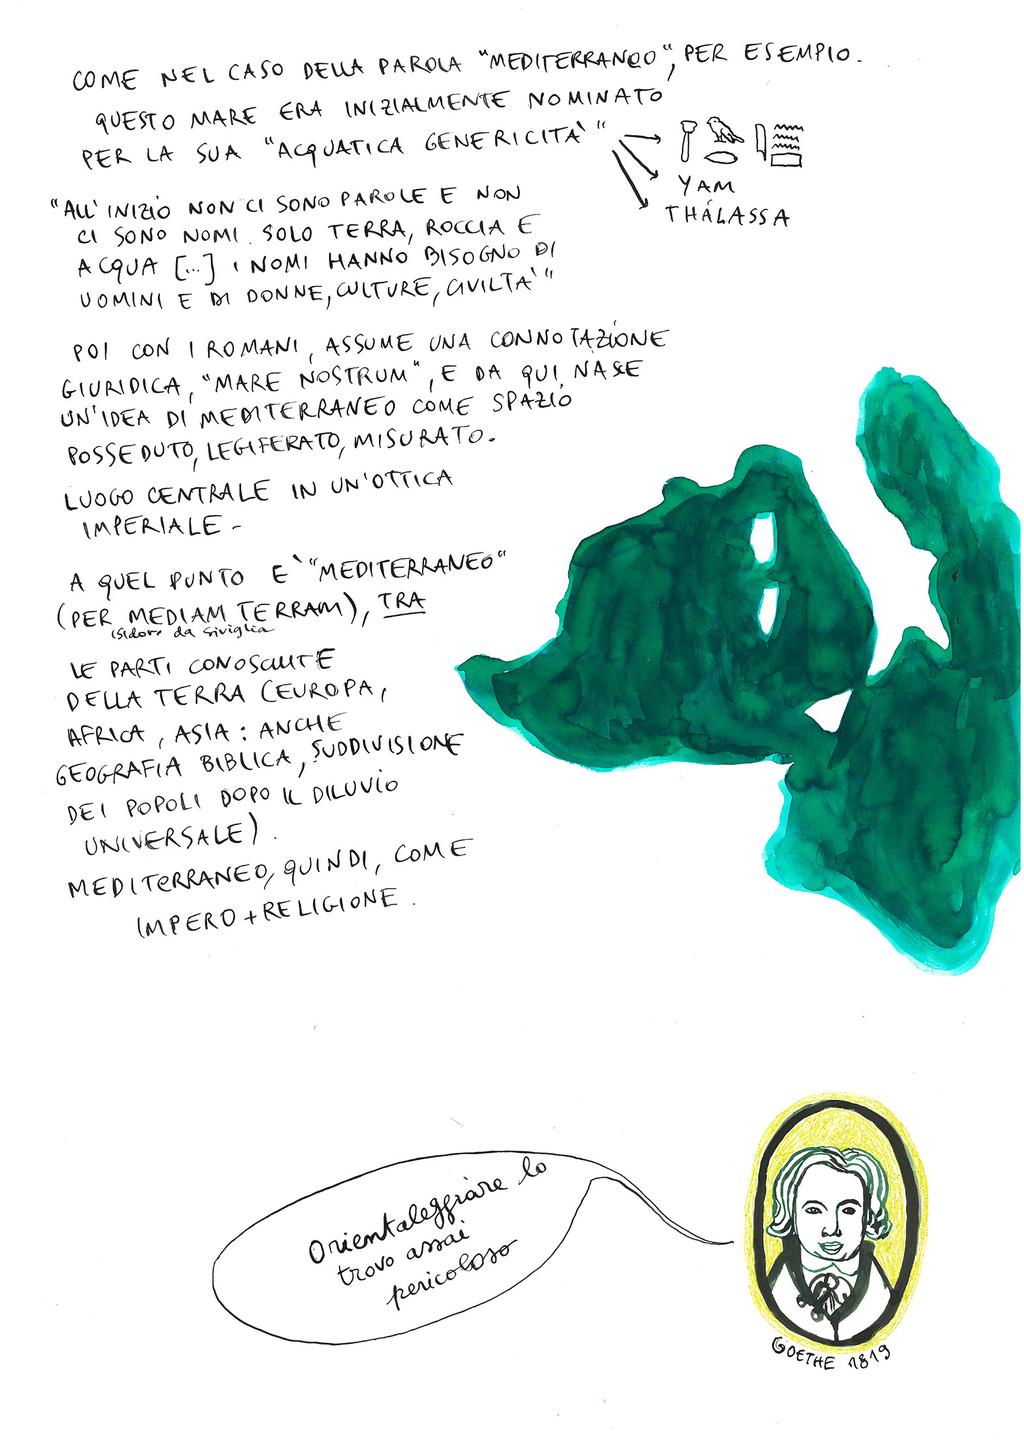 COME NEL CASO DELLA PAROLA "MEDITERRANEO", PER ESEMPIO.
QUESTO MARE ERA INIZIALMENTE NOMINATO
PER LA SUA "ACQUATICA GENERICITÀ"
YAM
THÁLASSA
"ALL'INIZIO NON CI SONO PAROLE E NON
CI SONO NOMI. SOLO TERRA, ROCCIA E
ACQUA [...] I NOMI HANNO BISOGNO DI
UOMINI E DI DONNE, CULTURE, CIVILTÀ"
POI CON I ROMANI, ASSUME UNA CONNOTAZIONE
GIURIDICA, "MARE NOSTRUM", E DA QUI NASCE
UN'IDEA DI MEDITERRANEO COME SPAZIO
POSSEDUTO, LEGIFERATO, MISURATO.
LUOGO CENTRALE IN UN'OTTICA
IMPERIALE -
A QUEL PUNTO E` "MEDITERRANEO"
(PER MEDIAM TERRAM), TRA
isidoro da siviglia
LE PARTI CONOSCIUTE
DELLA TERRA (EUROPA,
AFRICA, ASIA: ANCHE
GEOGRAFIA BIBLICA, SUDDIVISIONE
DEI POPOLI DOPO IL DILUVIO
UNIVERSALE).
MEDITERRANEO, QUINDI, COME
IMPERO + RELIGIONE.
Orientaleggiare lo
trovo assai
pericoloso
GOETHE 1819